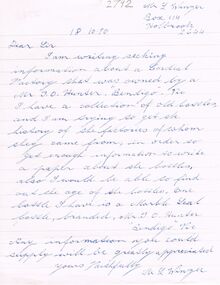 2792
Mr L Winzer
Box 114
Holbrook
2644
18.10.80
Dear Sir
I am writing seeking
information about a Cordial
Factory that was owned by a
Mr T.O. Hunter. "Bendigo" Vic
I have a collection of old bottles
and I am trying to get the
history of the factories of whom
they came from, in order so
I get enough information to write
a paper about the bottles,
also I would be able to find
out the age of the bottles, One
bottle I have is a Marble Seal
bottle, branded, Mr T O Hunter
"Bendigo" Vic
Any information you could
supply will be greatly appreciated
Yours Faithfully
Mr L Winzer